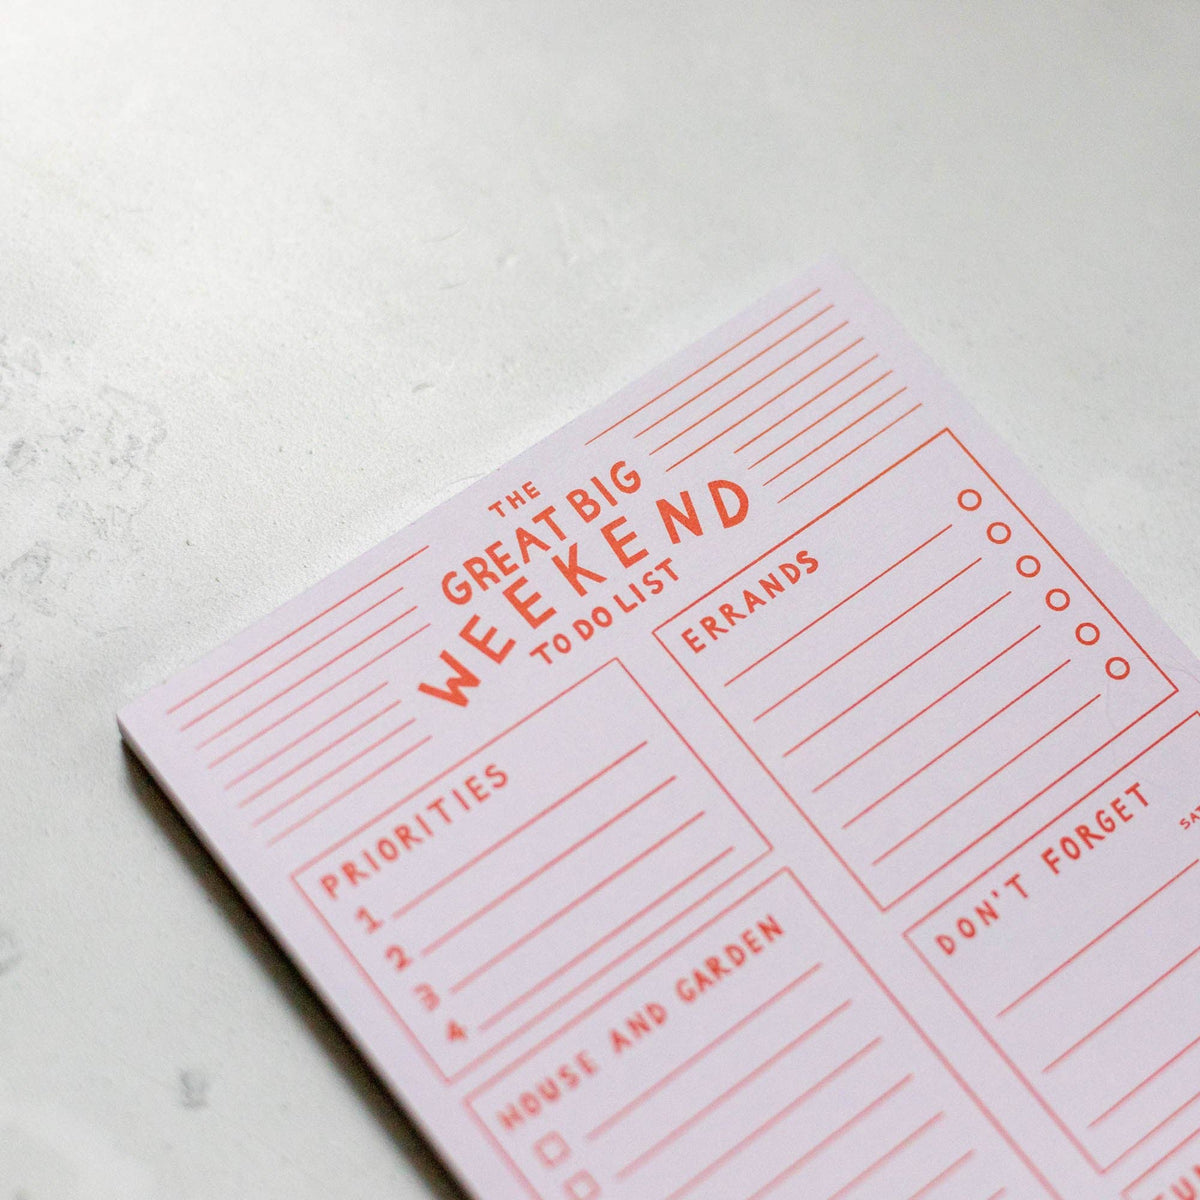 THE
GREAT BIG
WEEKEND
TO DO LIST
PRIORITIES
1
2
3
4
ERRANDS
HOUSE AND GARDEN
DON'T FORGET